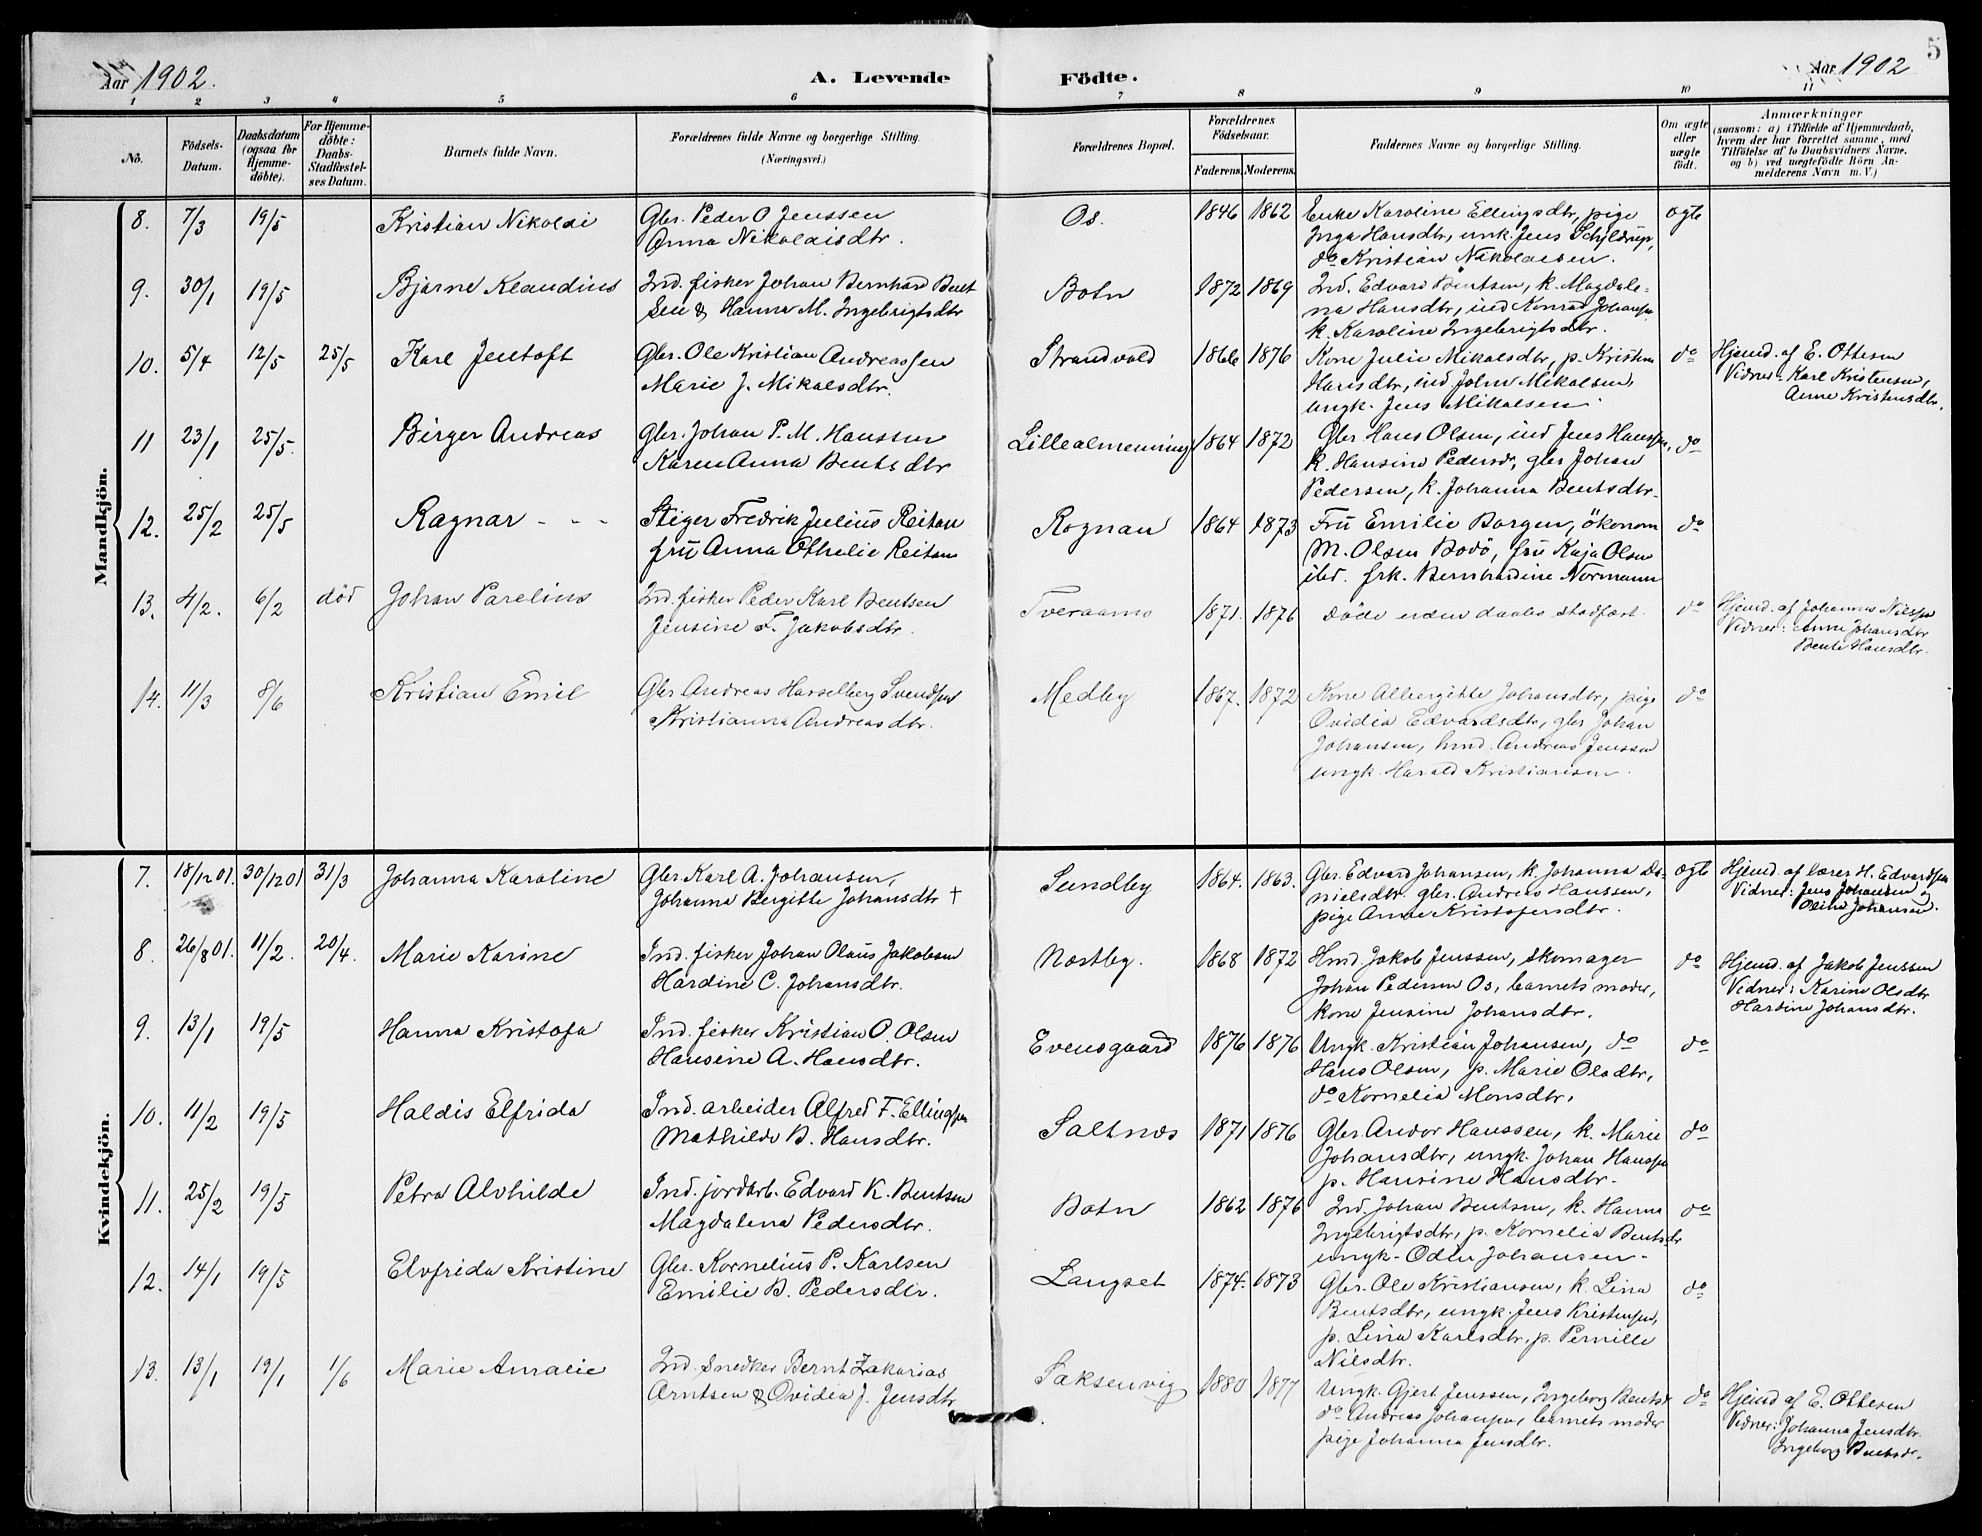 Aar 1902.
A. Levende Födte.
Aar 1902
5
1 2 3 4 5 6 7 8 9 10 11
No.
Födsels-Datum.
Daabsdatum (ogsaa for Hjemme-döbte).
For Hjemme-döbte: Daabs-Stadfæstel-ses Datum.
Barnets fulde Navn.
Forældrenes fulde Navne og borgerlige Stilling.
(Næringsvei.)
Forældrenes Bopæl.
Forældrenes Födselsaar.
Faderens. Moderens.
Faddernes Navne og borgerlige Stilling.
Om ægte eller uægte födt.
Anmærkninger
(saasom: a) i Tilfælde af Hjemmedaab, hvem der har forrettet samme, med Tilföielse af to Daabsvidners Navne, og b) ved uægtefödte Börn Anmelderens Navn m. V.)
Mandkjön.
8. 7/3 19/5 Kristian Nikolai
Gbr. Peder O Jenssen
Anna Nikolaisdtr.
Os. 1846 1862
Enke Karoline Ellingsdtr, pige
Inga Hansdtr, unk. Jens Schjldrup,
do Kristian Nikolaisen.
ægte
9. 30/1 19/5 Bjarne Klaudius
Ind. fisker Johan Bernhard Bent
sen & Hanna M. Ingebrigtsdtr
Botn 1872 1869
Ind. Edvard Bentsen, k. Magdale-
na Hansdtr, ind Konrad Johansen
k. Karoline Ingebrigtsdtr.
10. 5/4 12/5 25/5 Karl Jentoft
Gbr. Ole Kristian Andreassen
Marie J. Mikalsdtr.
Strandvold 1866 1876
Kone Julie Mikalsdtr, p. Kristine
Hansdtr, ind John Mikalsen,
ungk. Jens Mikalsen.
do
Hjemd. af E. Ottesen
Vidner: Karl Kristensen,
Anne Kristensdtr.
11 23/1 25/5. Birger Andreas
Gbr. Johan P. M. Hanssen
Karen Anna Bentsdtr
Lillealmenning 1864 1872
Gbr Hans Olsen, ind Jens Hanssen,
k. Hansine Pedersd, gbr Johan
Pedersen, k. Johanna Bentsdtr.
do
12. 25/2 25/5 Ragnar - - -
Stiger Fredrik Julius Reitan
fru Anna Othelie Reitan
Rognan 1864 1873
Fru Emilie Borgen, ökonom
M. Olsen Bodö, fru Kaja Olsen
ibd. frk. Bernhardine Normann
do
13. 4/2. 6/2 död Johan Parelius
Ind. fisker Peder Karl Bentsen
Jensine F. Jakobsdtr.
Tveraamo 1871. 1876
Döde uden daabs stadfæst.
do
Hjemd. af Johannes Nilssen
Vidner: Anne Johansdtr
Bente Hansdtr.
14. 11/3 8/6 Kristian Emil
Gbr Andreas Hasselberg Svendsen
Kristianna Andreasdtr.
Medby 1867. 1872
Kone Albergitte Johansdtr, pige
Ovidia Edvardsdtr, gbr Johan
Johansen, hmd. Andreas Jenssen
ungk. Harald Kristiansen.
do
Kvindekjön.
7. 18/12 01. 30/12 01 31/3 Johanna Karoline
Gbr Karl A. Johansen,
Johanna Bergitte Johansdtr †
Sundby 1864. 1863.
Gbr. Edvard Johansen, k. Johanna Da-
nielsdtr. gbr. Andreas Hanssen,
pige Anne Kristofersdtr.
ægte
Hjemd. af lærer H. Edvardsen
Vidner: Jens Johansen
Oline Johansen.
8. 26/8 01. 11/2. 20/4. Marie Karine
Ind. fisker Johan Olaus Jakobsen
Hardine C. Johansdtr.
Nestby. 1868 1872
Hmd. Jakob Jenssen, skomager
Johan Pedersen Os, barnets moder,
kone Jensine Johansdtr.
do
Hjemd. af Jakob Jenssen
Vidner: Karine Olsdtr
Hardine Johansdtr.
9. 13/1 19/5 Hanna Kristofa
Ind. fisker Kristian O. Olsen
Hansine A. Hansdtr.
Evensgaard 1876 1876
Ungk. Kristian Johansen, do
Hans Olsen, p. Marie Olsdtr,
do Kornelia Monsdtr,
do
10. 11/2 19/5 Haldis Elfrida
Ind. arbeider Alfred F. Ellingsen
Mathilde B. Hansdtr.
Saltnes 1871 1876
Gbr. Andor Hanssen, k. Marie
Johansdtr, ungk. Johan Hanssen
p. Hansine Hansdtr.
do
11. 25/2 19/5 Petra Alvhilde
Ind. jordarb. Edvard K. Bentsen
Magdalena Pedersdtr.
Botn 1862 1876
Ind. Johan Bentsen, k. Hanna
Ingebrigtsdtr, p. Kornelia Bentsdr
ungk. Odin Johansen.
do
12. 14/1 19/5 Elvfrida Kristine
Gbr. Kornelius P. Karlsen
Emilie B. Pedersdtr.
Langset 1874. 1873
Gbr. Ole Kristiansen, k. Lina
Bentsdtr, ungk. Jens Kristensen,
p. Lina Karlsdtr, p. Pernille
Nilsdtr.
do
13. 13/1 19/1 1/6 Marie Amalie
Ind. snedker Bernt Zakarias
Arntsen & Ovidia J. Jensdtr
Saksenvig 1880 1877
Ungk. Gjert Jenssen, Ingeborg Bentsd.
do Andreas Johansen, barnets moder
pige Johanna Jensdtr.
do
Hjemd af E. Ottesen
Vidner: Johanna Jensdtr.
Ingeborg Bentsdr.